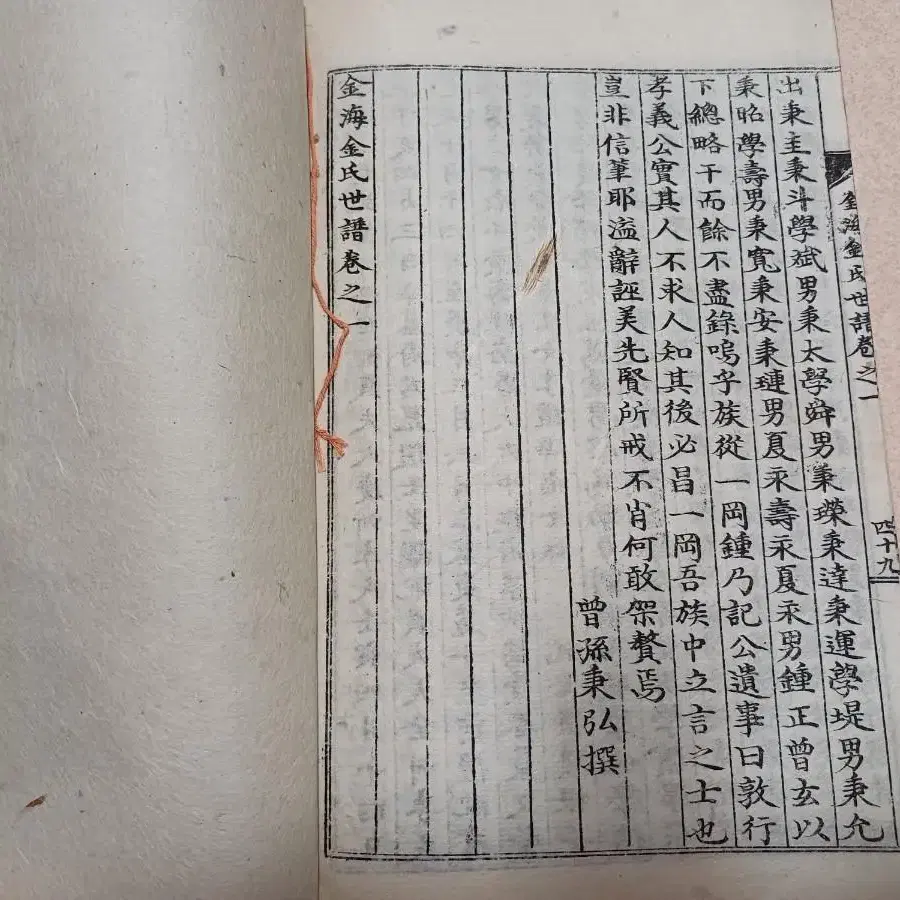 金海金氏世譜卷之一
四十九
出秉圭秉斗學斌男秉太學舜男秉瓅秉達秉運學堤男秉允
秉昭學壽男秉寬秉安秉璉男夏永壽永夏永男鍾正曾玄以
下總略干而餘不盡錄嗚乎族從一岡鍾乃記公遺事曰敦行
孝義公實其人不求人知其後必昌一岡吾族中立言之士也
豈非信筆耶溢辭誣美先賢所戒不肖何敢架贅焉
曾孫秉弘撰
金海金氏世譜卷之一